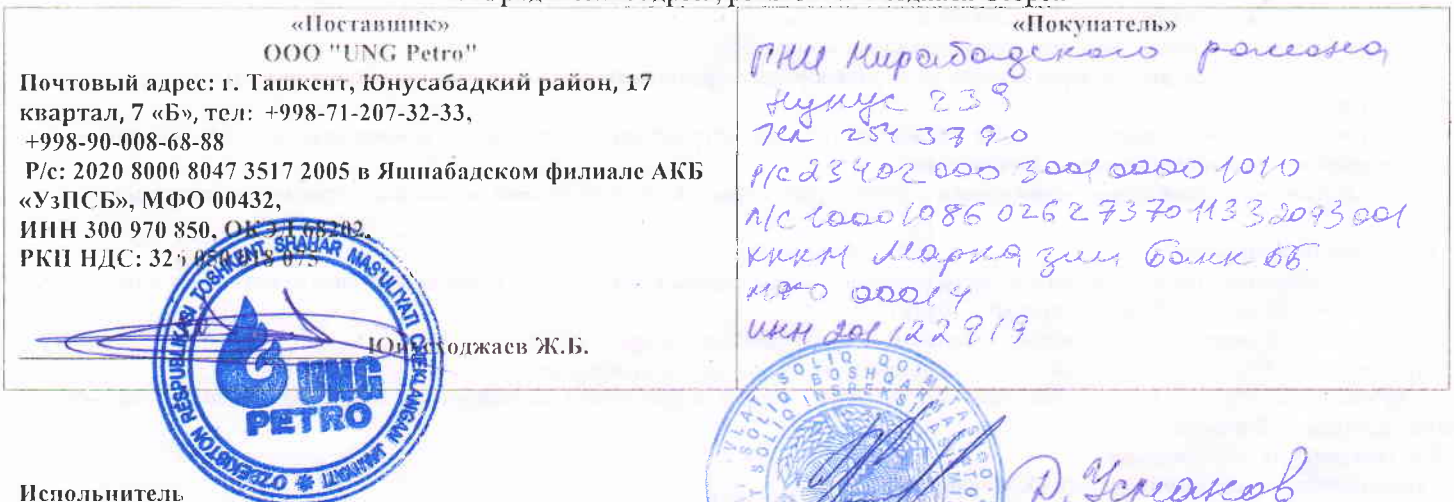 «Поставщик»
ООО "UNG Petro"
Почтовый адрес: г. Ташкент, Юнусабадкий район, 17
квартал, 7 «Б», тел: +998-71-207-32-33,
+998-90-008-68-88
Р/с: 2020 8000 8047 3517 2005 в Яшнабадском филиале АКБ
«УзПСБ», МФО 00432,
ИНН 300 970 850, ОКЭД 68202,
РКП НДС:
ходжаев Ж.Б.
O'ZBEKISTON RESPUBLIKASI TOSHKENT SHAHAR MAS'ULIYATI CHEKLANGAN JAMIYATI
UNG
PETRO
Испольнитель
«Покупатель»
ГНИ Мирабадского района
Нукус 239
Тел 254 37 90
Р/с 23402000300100001010
Л/с 100010860262737011332093001
ХККМ Марказий банк ББ
МФО 00014
ИНН 201122919
SOLIQ
BOSHQARMASI
SOLIQ INSPEKSIYASI
Д. Усманов